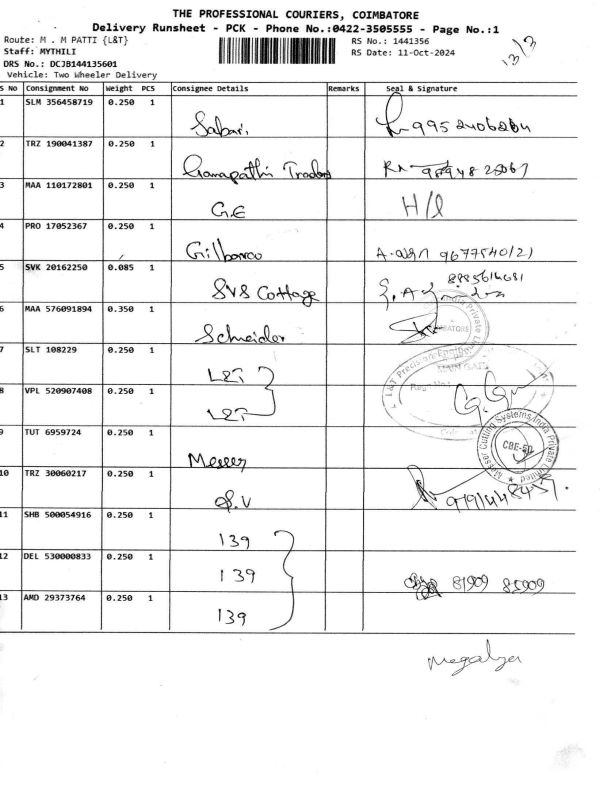 THE PROFESSIONAL COURIERS, COIMBATORE
Delivery Runsheet - PCK - Phone No.:0422-3505555 - Page No.:1
Route: M . M PATTI {L&T} RS No.: 1441356
Staff: MYTHILI RS Date: 11-Oct-2024
13/3
DRS No.: DCJB144135601
Vehicle: Two Wheeler Delivery
S No Consignment No Weight PCS Consignee Details Remarks Seal & Signature
1 SLM 356458719 0.250 1
Sabari,
2 TRZ 190041387 0.250 1
Ganapathi Traders
3 MAA 110172801 0.250 1
G.E H/d
4 PRO 17052367 0.250 1
Gilbarco 9677540121
5 SVK 20162250 0.085 1
SVS Cottage
6 MAA 576091894 0.350 1
Schneider
7 SLT 108229 0.250 1
L&T
8 VPL 520907408 0.250 1
L&T
9 TUT 6959724 0.250 1
Messer
10 TRZ 30060217 0.250 1
S.V
11 SHB 500054916 0.250 1
139
12 DEL 530000833 0.250 1
139 81909 85909
13 AMD 29373764 0.250 1
139
Messer Cutting Systems India Private Limited
CBE-50